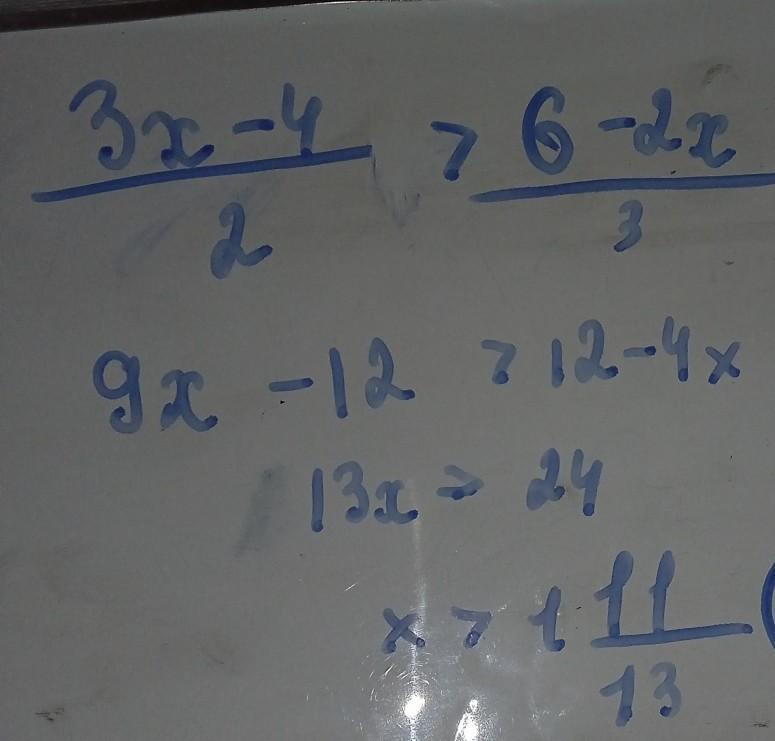 3x-4 > 6-2x
2 3
9x -12 > 12-4x
13x > 24
x > 1 11
13